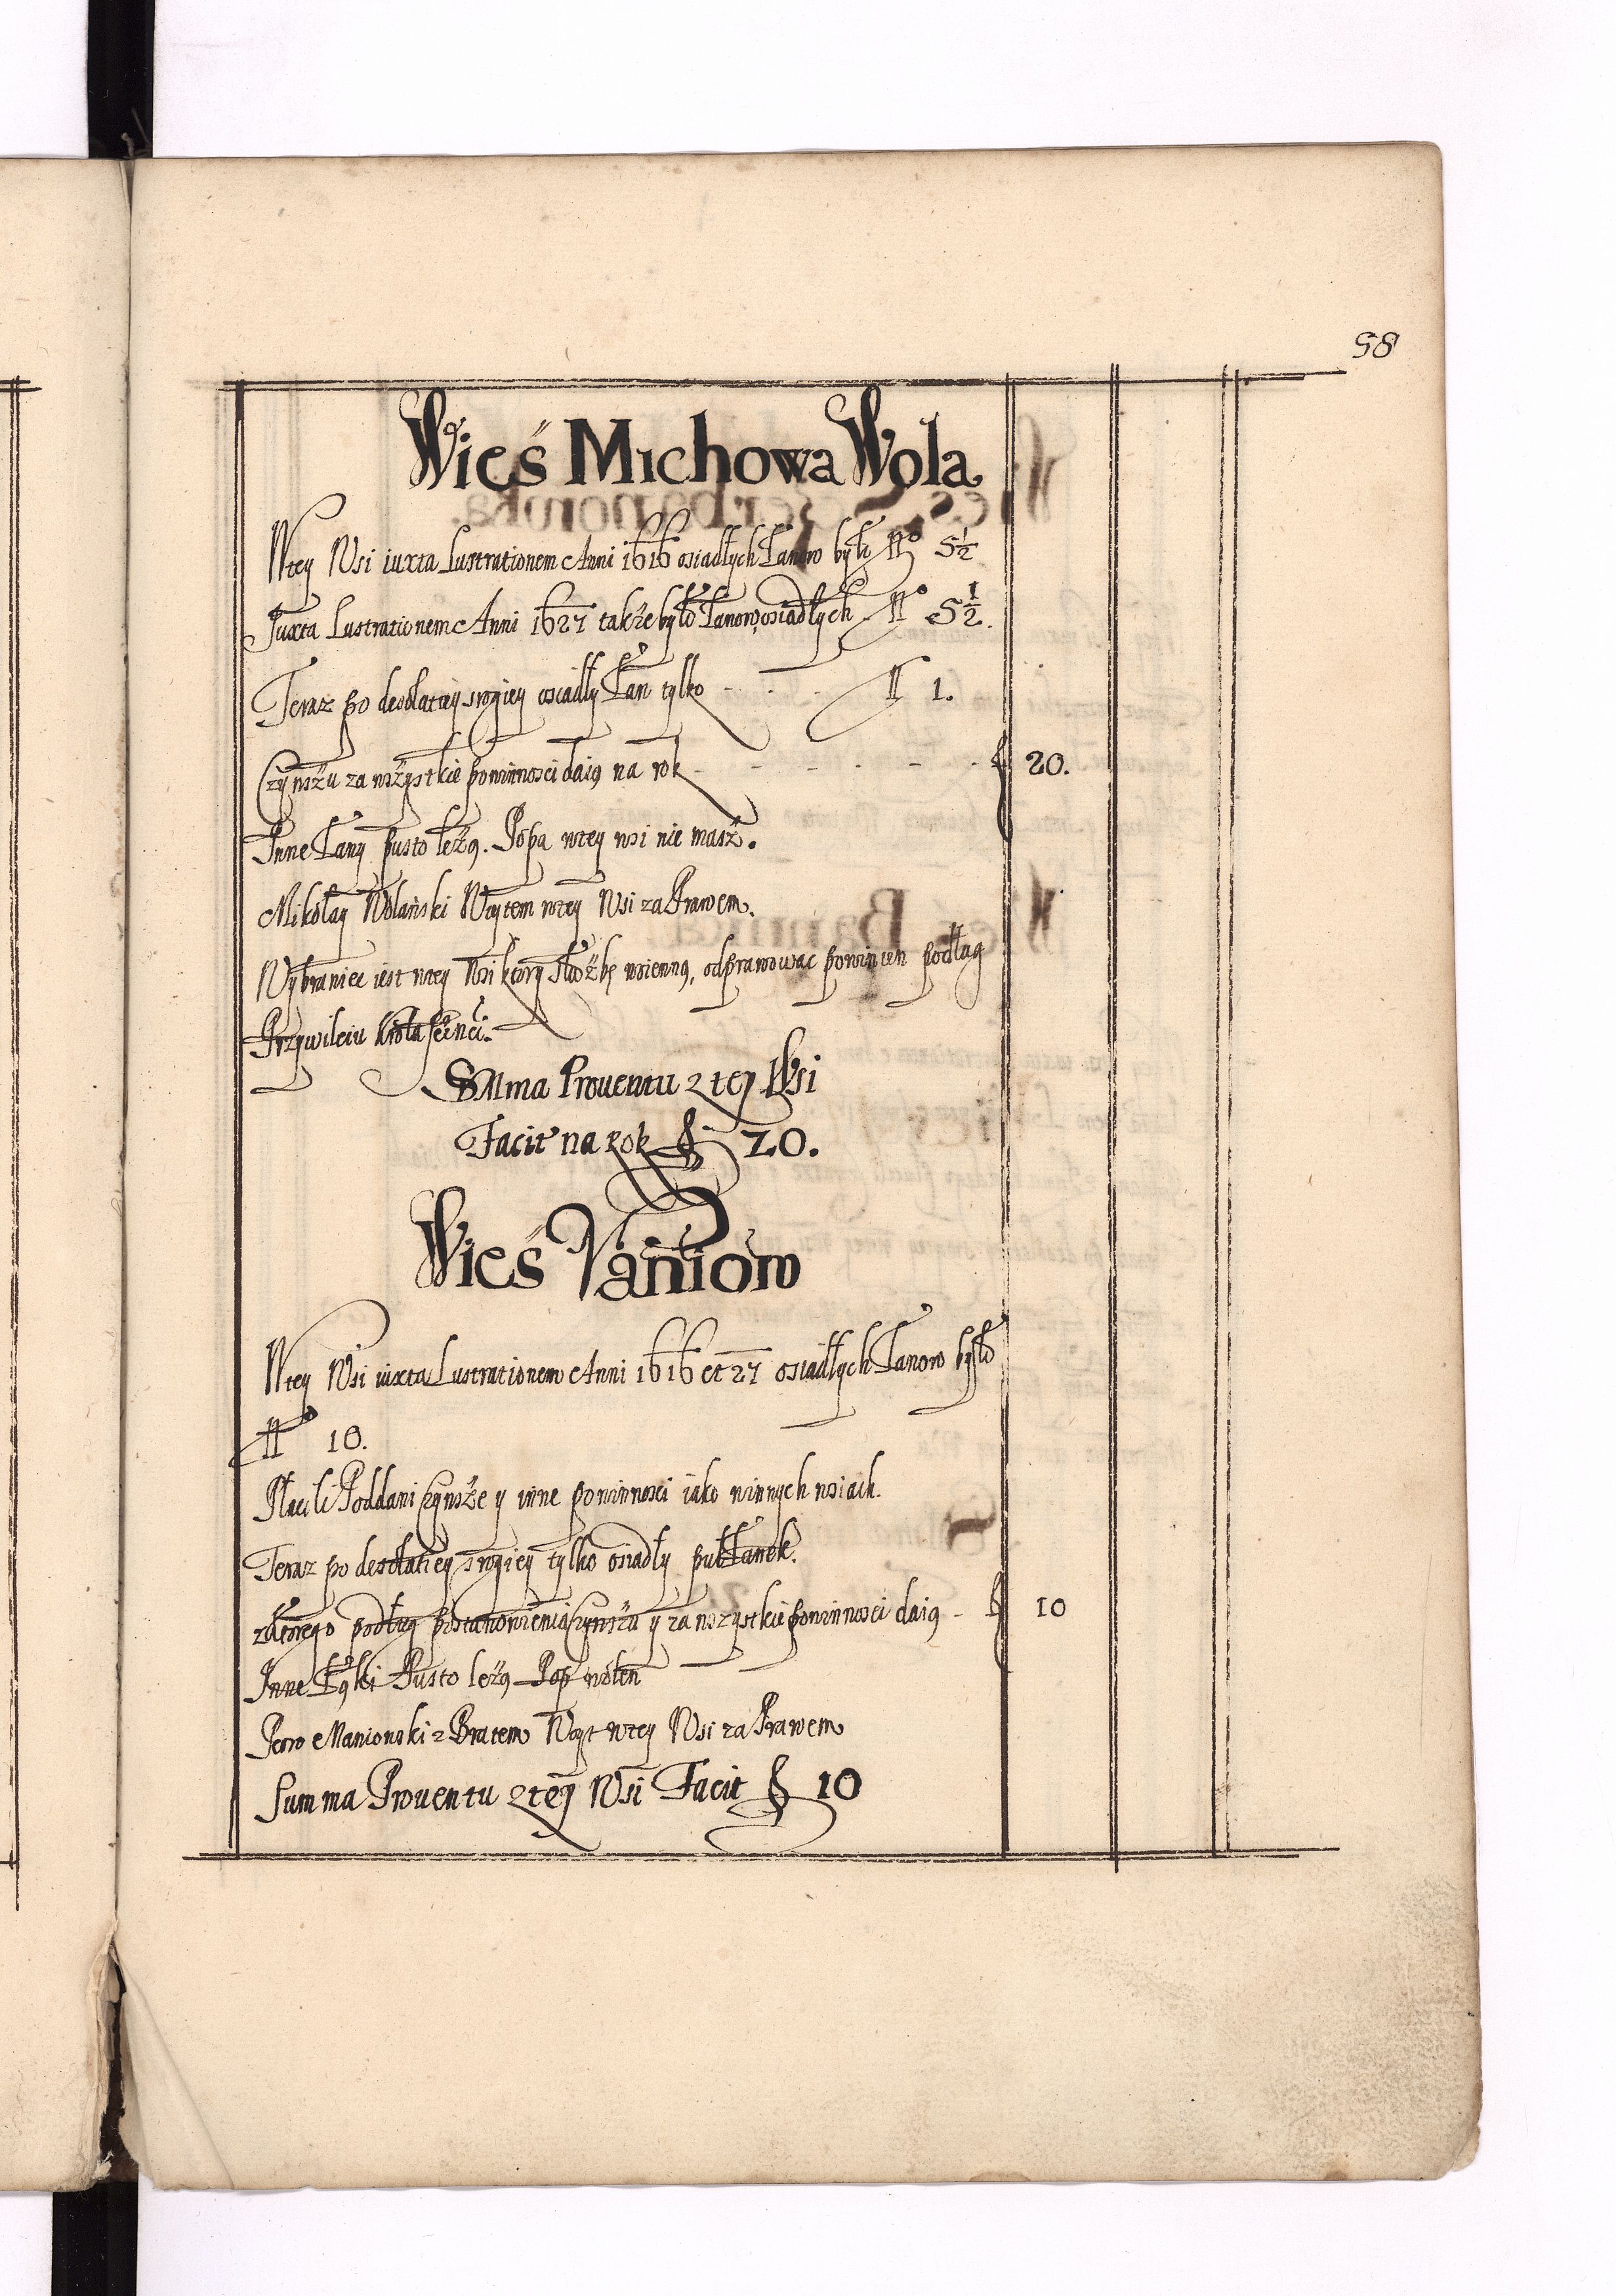 58
Wieś Michowa Wola
Wtey Wsi iuxta Lustrationem Anni 1616 osiadłych Łanow było Nº 5½
Juxta Lustrationem Anni 1627 także było Łanow osiadłych Nº 5½.
Teraz po desolatiey srogiey osiadły Łan tylko - - - N 1.
Czynszu za wszystkie powinnosci daią na rok - - - - - - f 20.
Inne Łany pusto leżą. Popa wtey wsi nie masz.
Mikołay Wolański Woytem wtey Wsi za Prawem.
Wybraniec iest wtey Wsi ktory służbę wienną, odprawować powinien podług
Przywileiu
Suma Prouentu z tey Wsi
Facit na rok f 20.
Wieś Vaniow
Wtey Wsi iuxta Lustrationem Anni 1616 et 27 osiadłych Łanow było
Nº 10.
Płacili Poddani Czynsze y inne powinnosci iako winnych wsiach.
Teraz po desolatiey srogiey tylko osiadły puł Łanek.
zktorego podług postanowienia Czynszu y za wszystkie powinnosci daią - f 10
Inne Łąki Pusto leżą Pop
Manionski z Bratem Woyt wtey Wsi za Prawem
Summa Prouentu z tey Wsi Facit f 10